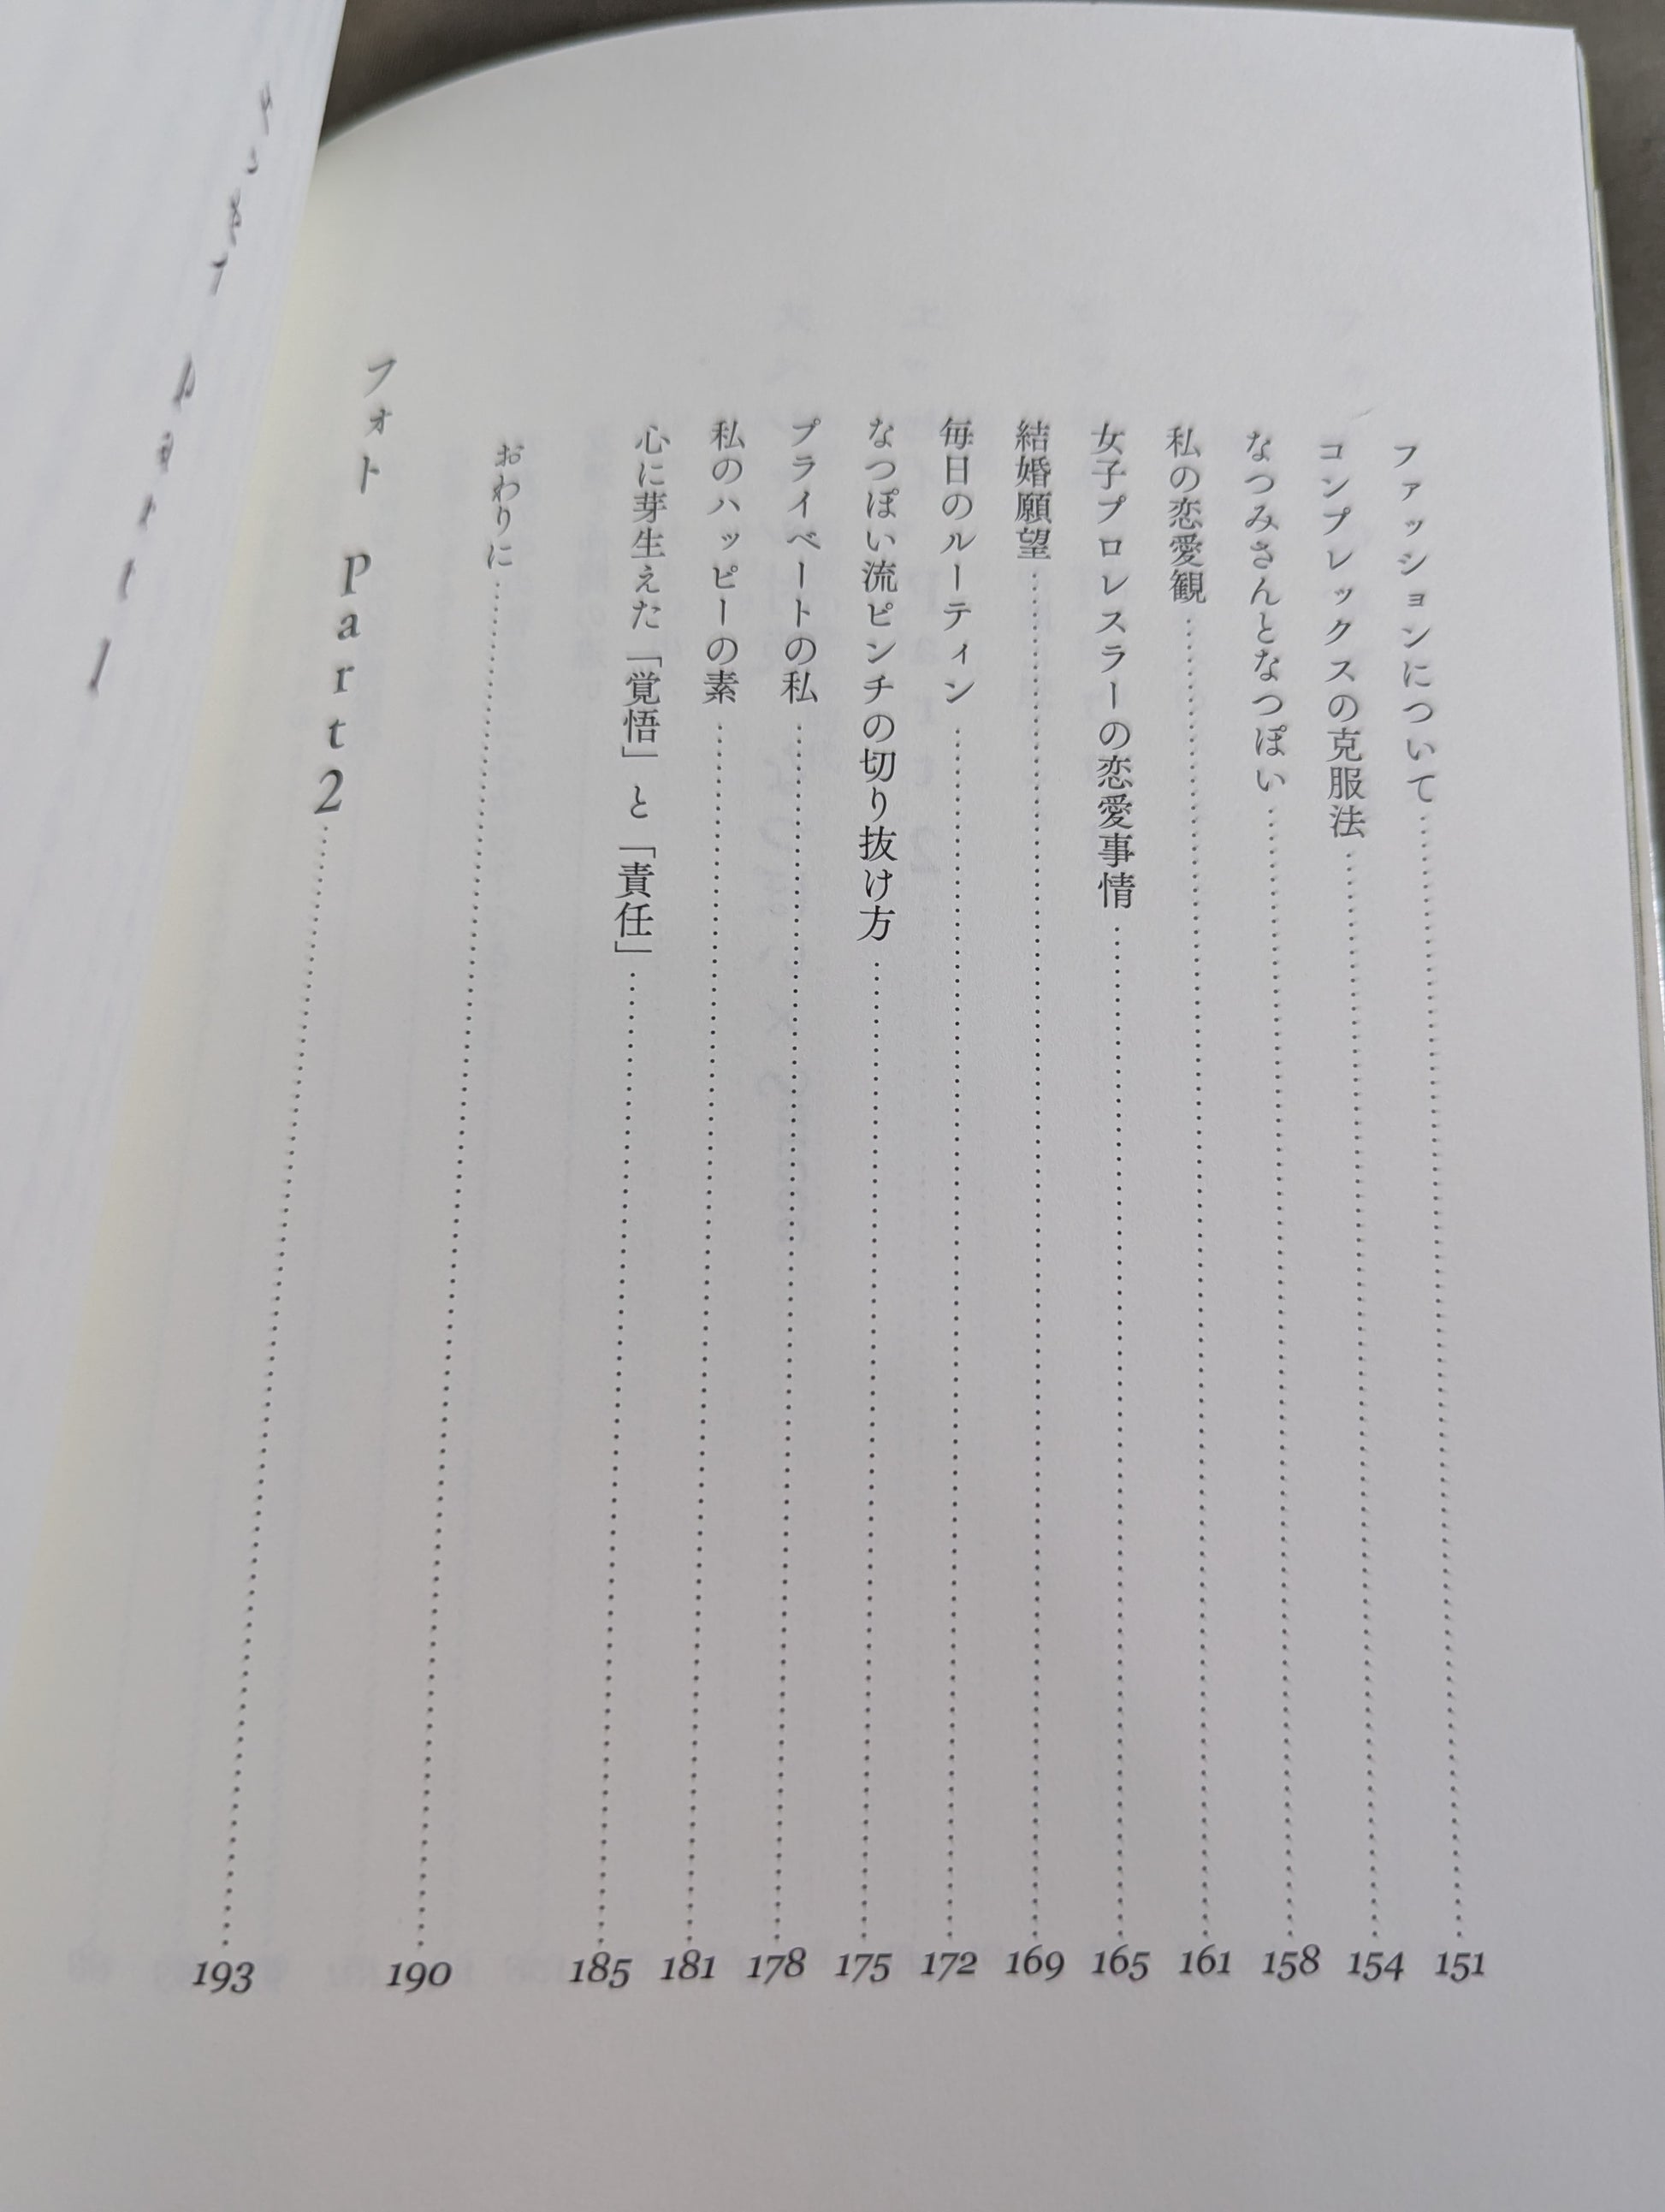 ファッションについて……151
コンプレックスの克服法……154
なつみさんとなつぽい……158
私の恋愛観……161
女子プロレスラーの恋愛事情……165
結婚願望……169
毎日のルーティン……172
なつぽい流ピンチの切り抜け方……175
プライベートの私……178
私のハッピーの素……181
心に芽生えた「覚悟」と「責任」……185
おわりに……190
フォト Part2……193